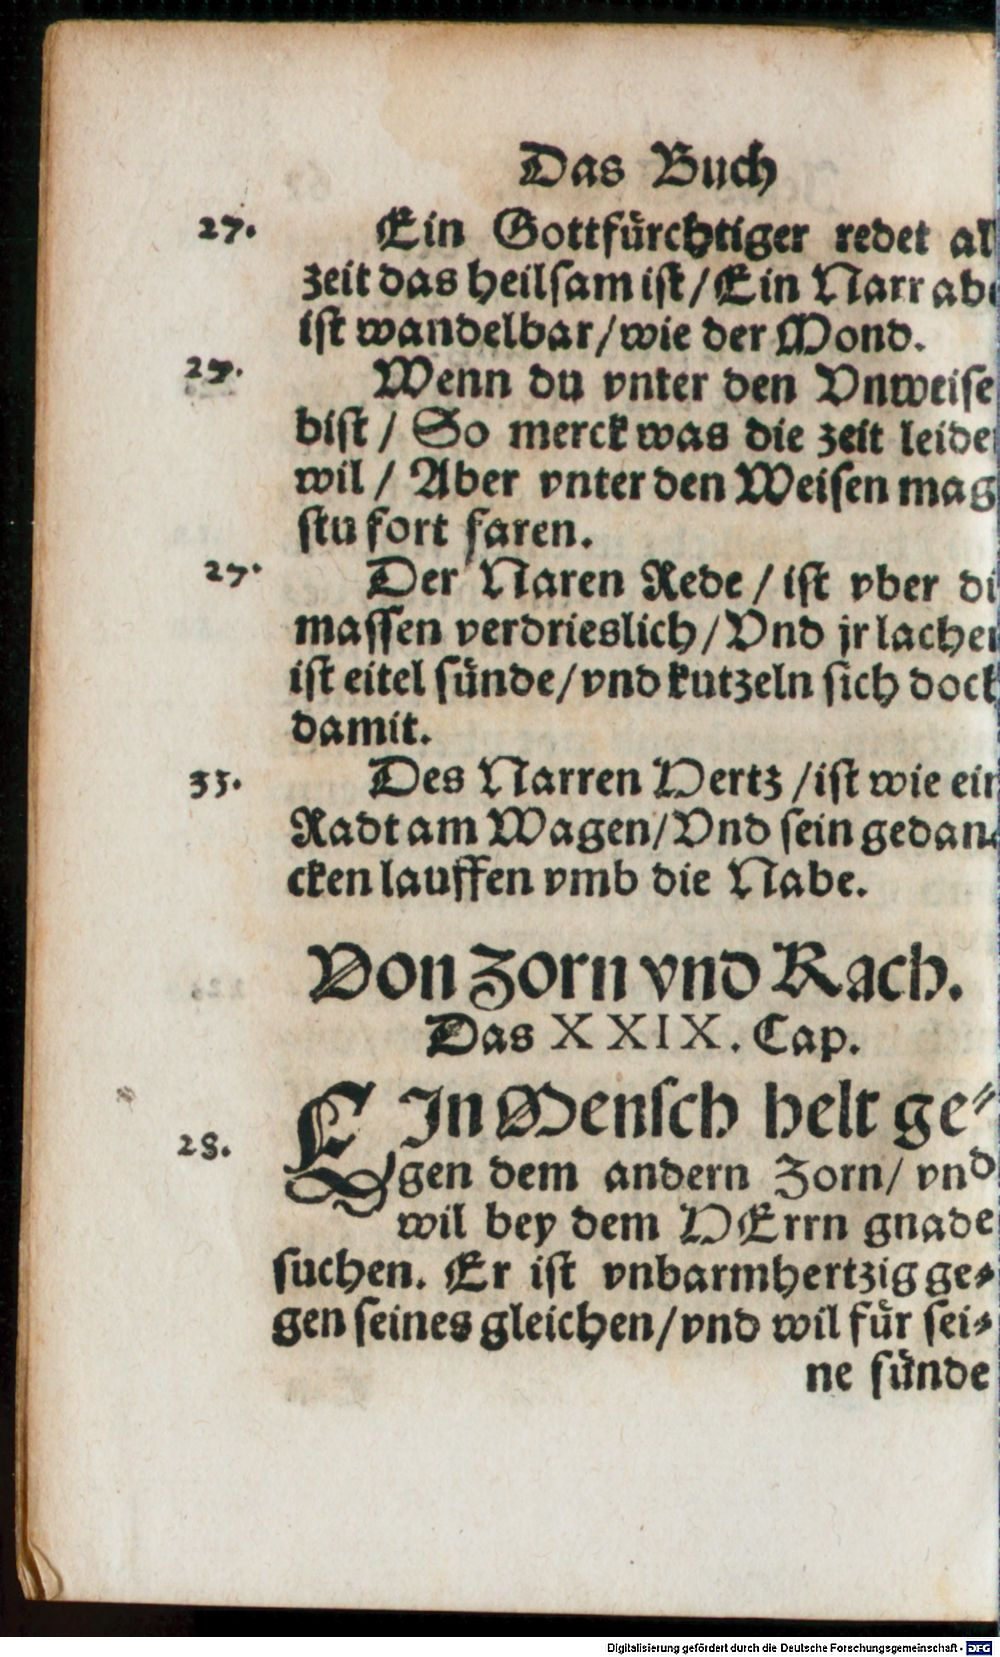 Das Buch
27. Ein Gottfürchtiger redet al
zeit das heilsam ist / Ein Narr abe
ist wandelbar / wie der Mond.
27. Wenn du vnter den Vnweise
bist / So merck was die zeit leide
wil / Aber vnter den Weisen mag
stu fort faren.
27. Der Naren Rede / ist vber di
massen verdrieslich / Vnd jr lachen
ist eitel sünde / vnd kutzeln sich doch
damit.
33. Des Narren Hertz / ist wie ein
Radt am Wagen / Vnd sein gedan-
cken lauffen vmb die Nabe.
Von Zorn vnd Rach.
Das XXIX. Cap.
EIn Mensch helt ge-
28. gen dem andern Zorn / vnd
wil bey dem HErrn gnade
suchen. Er ist vnbarmhertzig ge-
gen seines gleichen / vnd wil für sei-
ne sünde
Digitalisierung gefördert durch die Deutsche Forschungsgemeinschaft - DFG